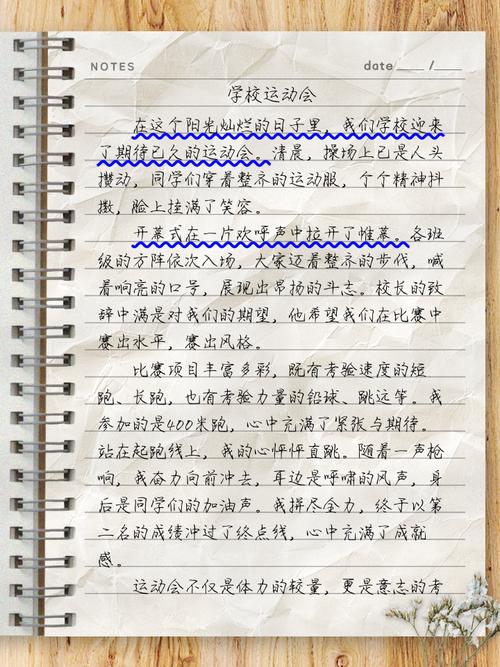 NOTES
date /
学校运动会
在这个阳光灿烂的日子里，我们学校迎来
了期待已久的运动会。清晨，操场上已是人头
攒动，同学们穿着整齐的运动服，个个精神抖
擞，脸上挂满了笑容。
开幕式在一片欢呼声中拉开了帷幕。各班
级的方阵依次入场，大家迈着整齐的步伐，喊
着响亮的口号，展现出昂扬的斗志。校长的致
辞中满是对我们的期望，他希望我们在比赛中
赛出水平，赛出风格。
比赛项目丰富多彩，既有考验速度的短
跑、长跑，也有考验力量的铅球、跳远等。我
参加的是400米跑，心中充满了紧张与期待。
站在起跑线上，我的心怦怦直跳。随着一声枪
响，我奋力向前冲去，耳边是呼啸的风声，身
后是同学们的加油声。我拼尽全力，终于以第
二名的成绩冲过了终点线，心中充满了成就
感。
运动会不仅是体力的较量，更是意志的考